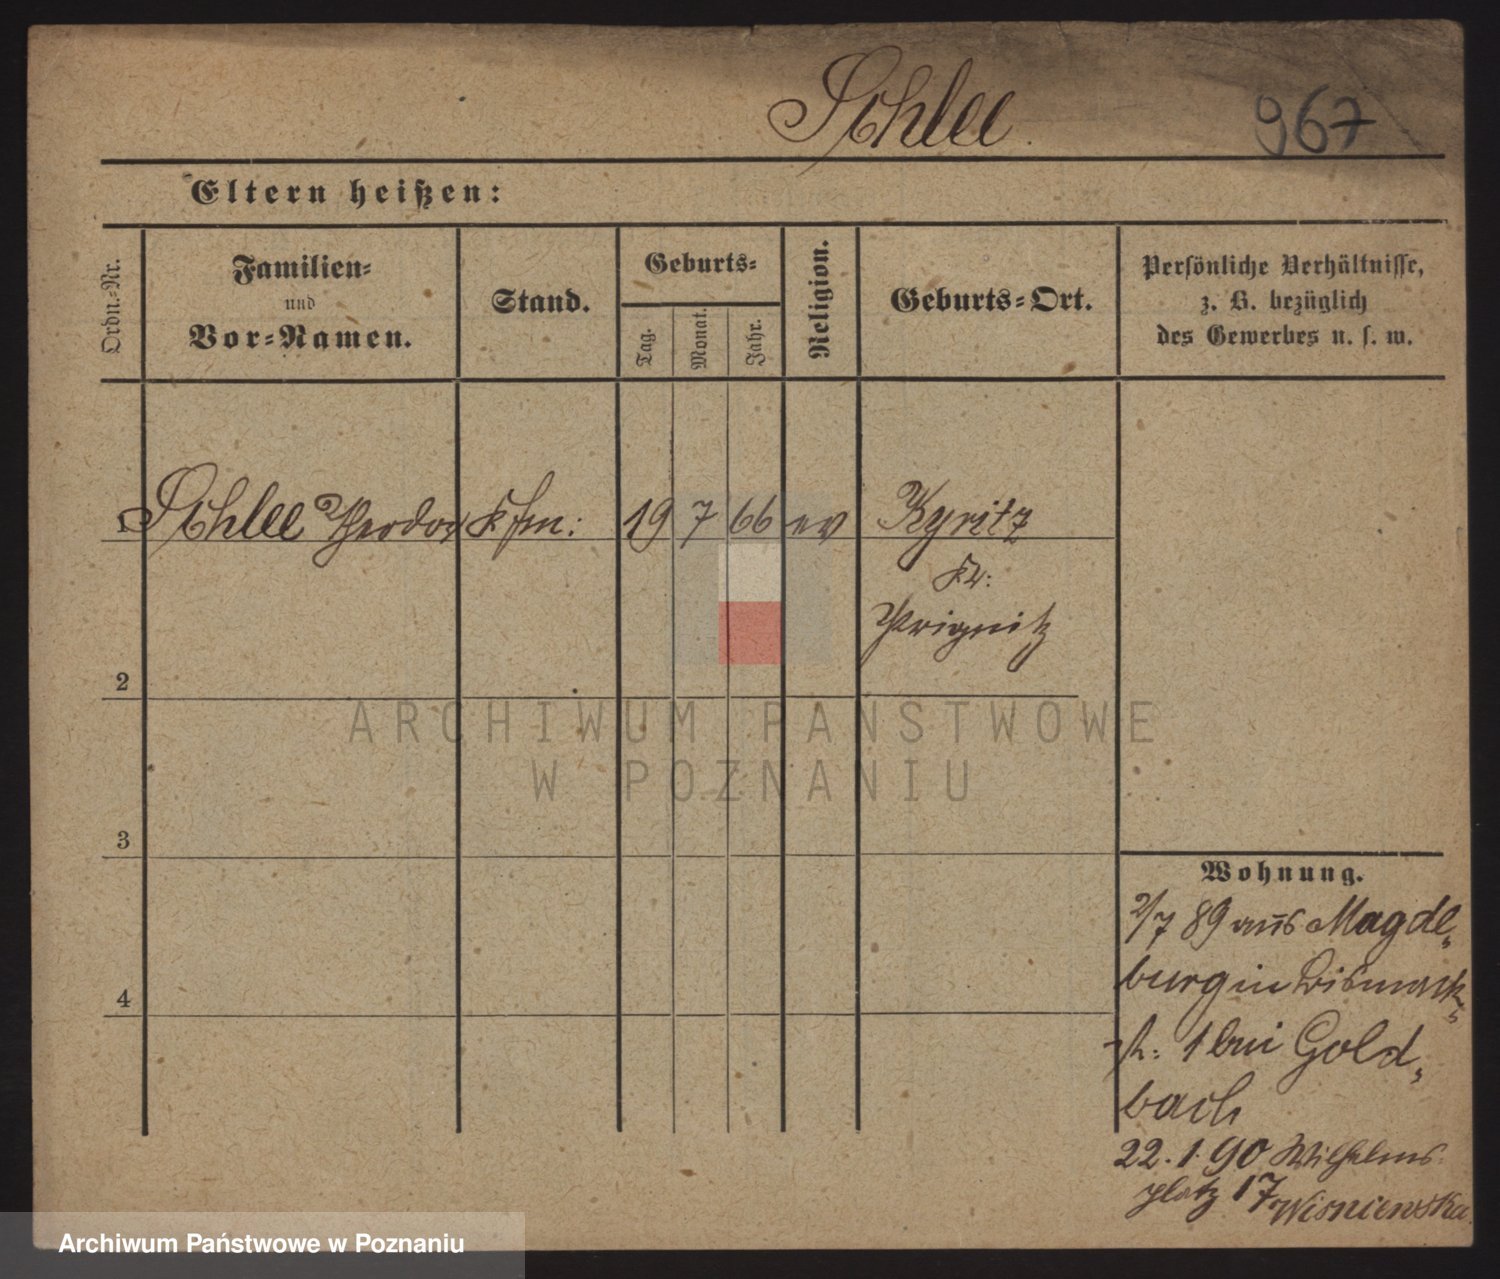 Schlee.
967
Eltern heißen:
Ordn.-Nr.
Familien-
und
Vor-Namen.
Stand.
Geburts-
Tag.
Monat.
Jahr.
Religion.
Geburts-Ort.
Persönliche Verhältnisse,
z. B. bezüglich
des Gewerbes u. s. w.
1 Schlee Theodor Kfm: 19 7 66 ev Kyritz
Kr:
Prignitz
2
3
4
ARCHIWUM PAŃSTWOWE
W POZNANIU
Wohnung.
2/7 89 aus Magde„
burg in Bismarck„
st: 1 bei Gold„
bach
22. 1. 90 Wilhelms
platz 17 Wisniewska
Archiwum Państwowe w Poznaniu